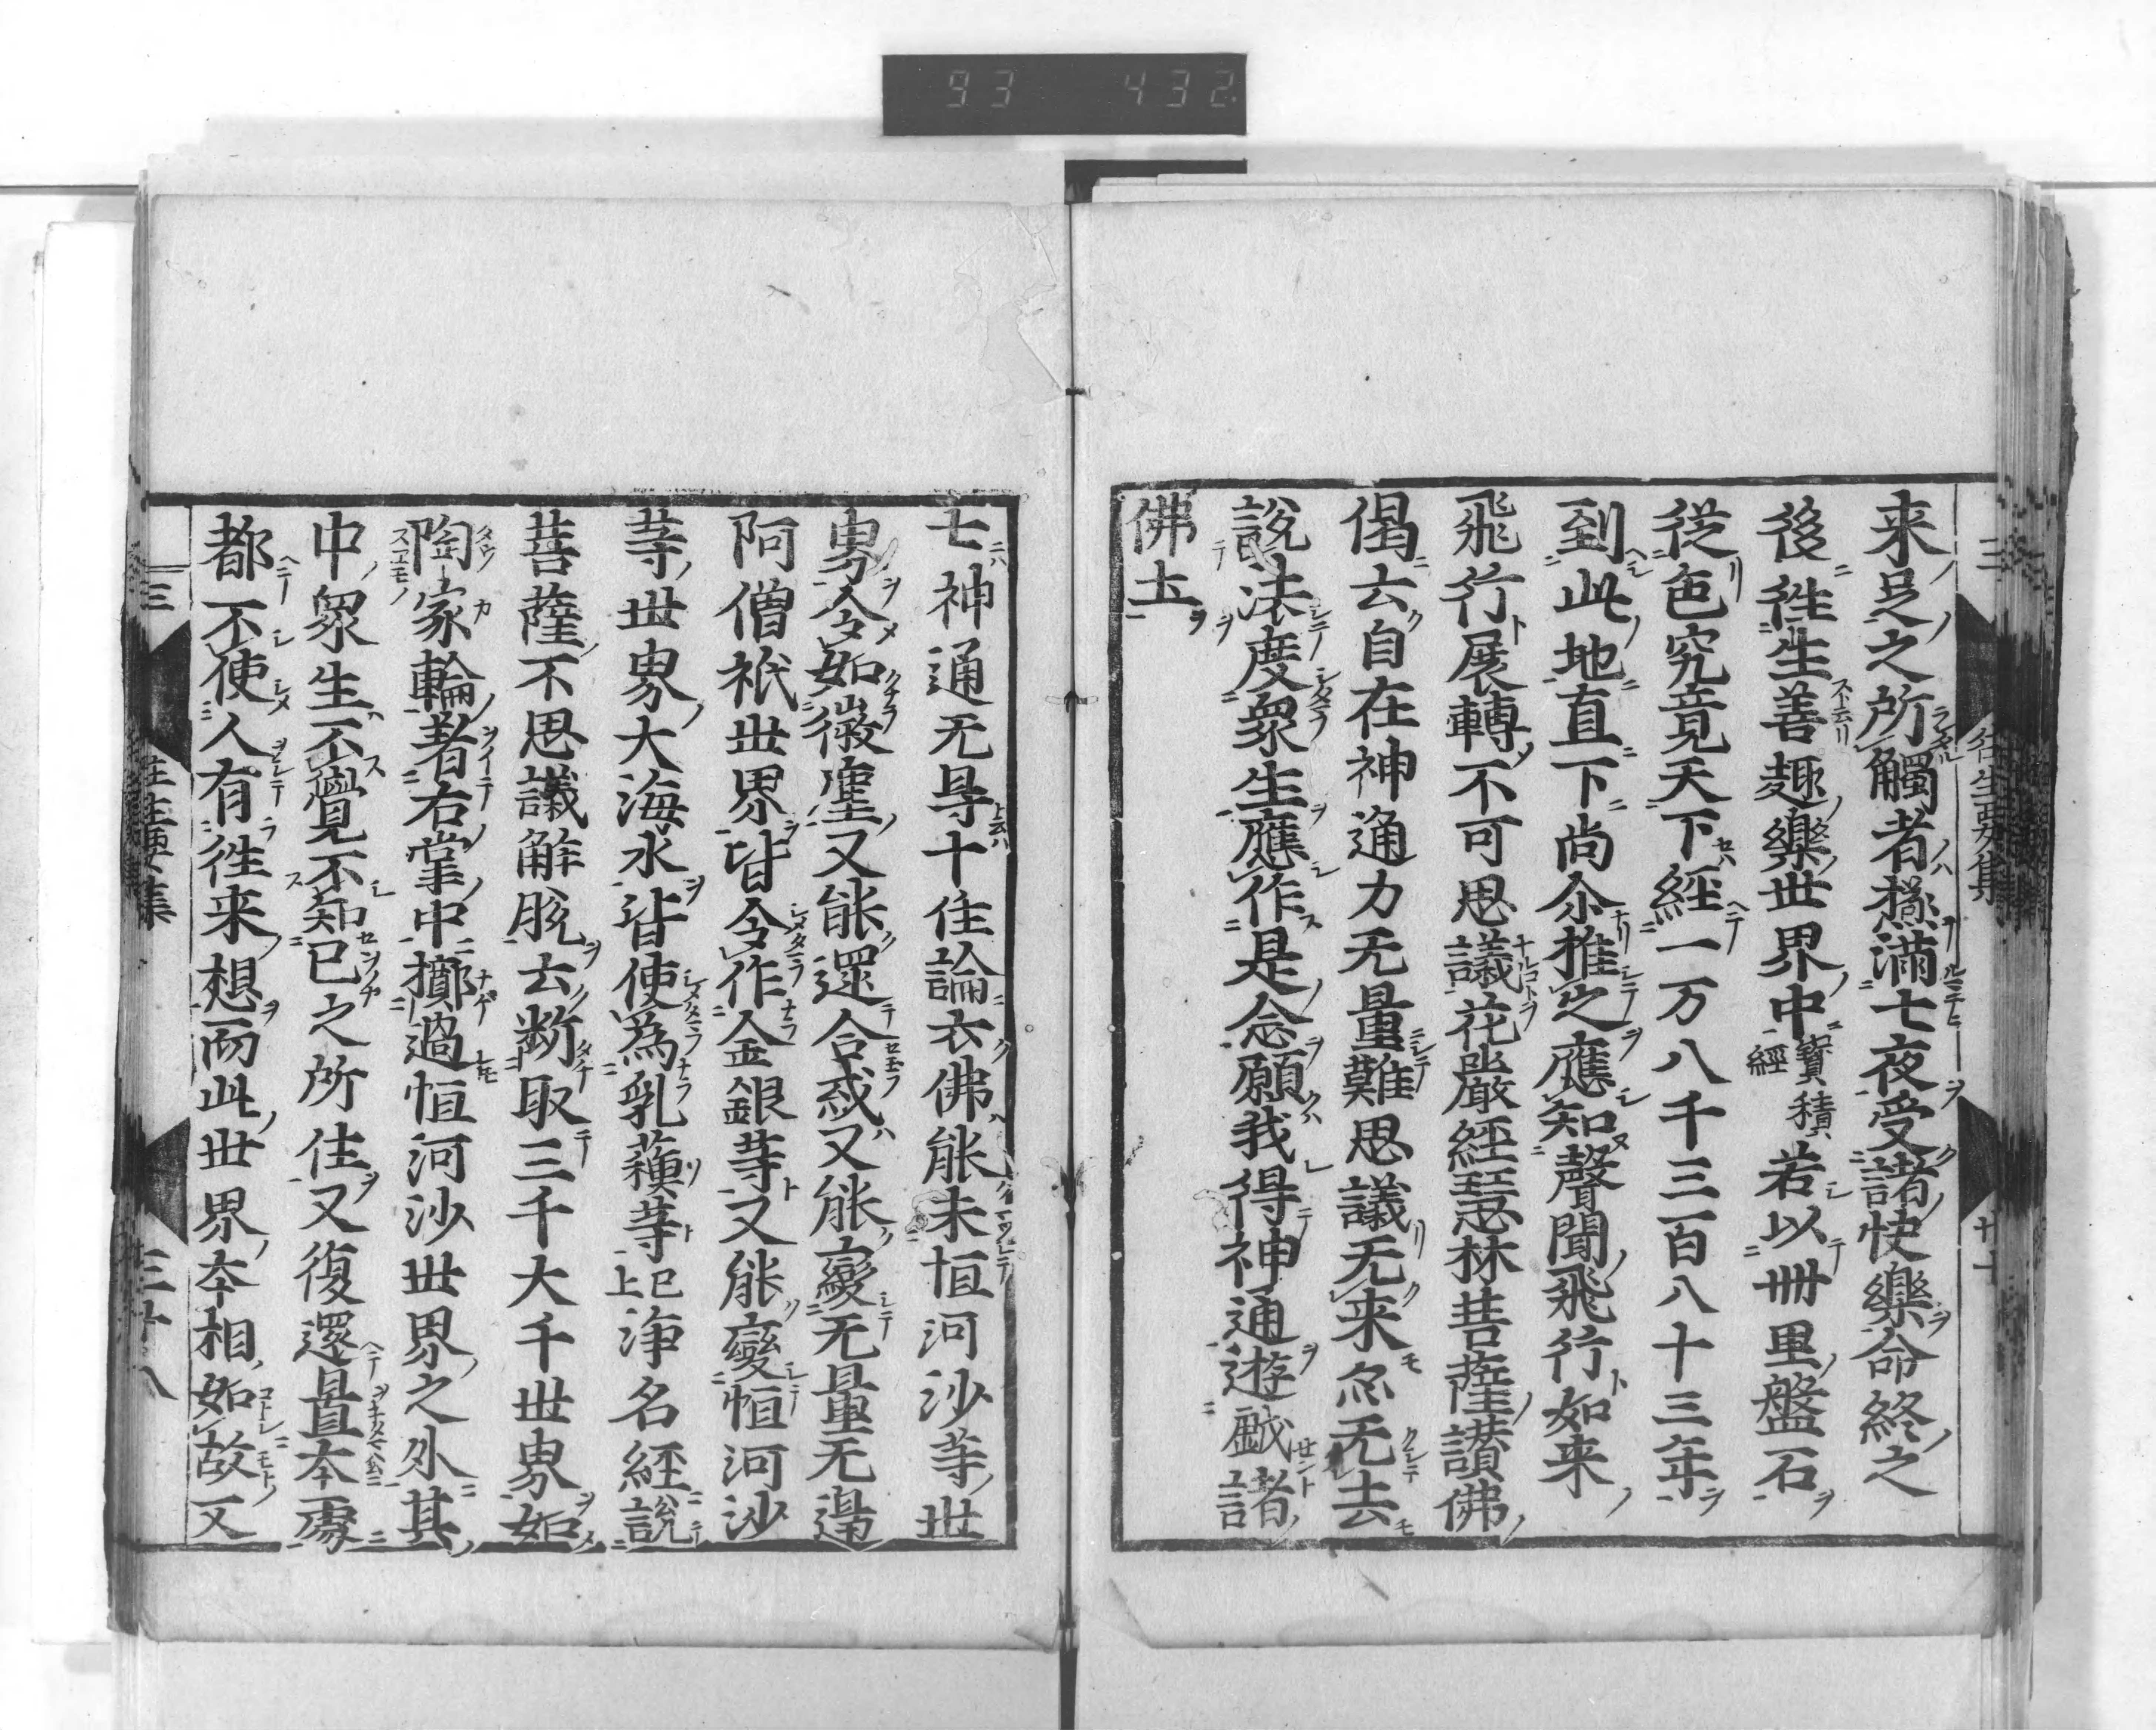 来足之所觸者極滿七夜受諸快樂命終之
後徃生善趣樂世界中寶積經若以卌里盤石
從色究竟天下經一万八千三百八十三年
到此地直下尚尒推之應知聲聞飛行如来
飛行展轉不可思議花嚴經慧林菩薩讃佛
偈云自在神通力无量難思議无来亦无去
説法度衆生應作是念願我得神通遊戯諸
佛土
七神通无㝵十住論云佛能末恒河沙等世
界令如微塵又能還合或又能變无量无邊
阿僧祇世界皆令作金銀等又能變恒河沙
等世界大海水皆使為乳蘓等已上浄名經説
菩薩不思議解脱云断取三千大千世界如
陶家輪著右掌中擲過恒河沙世界之外其
中衆生不覺不知己之所住又復還置本處
都不使人有徃来想而此世界本相如故又
三 徃生要集 三 廿八
93 432.